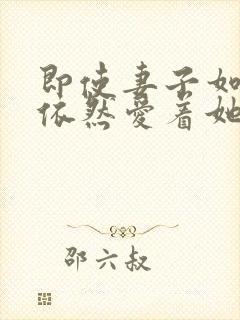 即使妻子如
依然爱着她
邵六叔